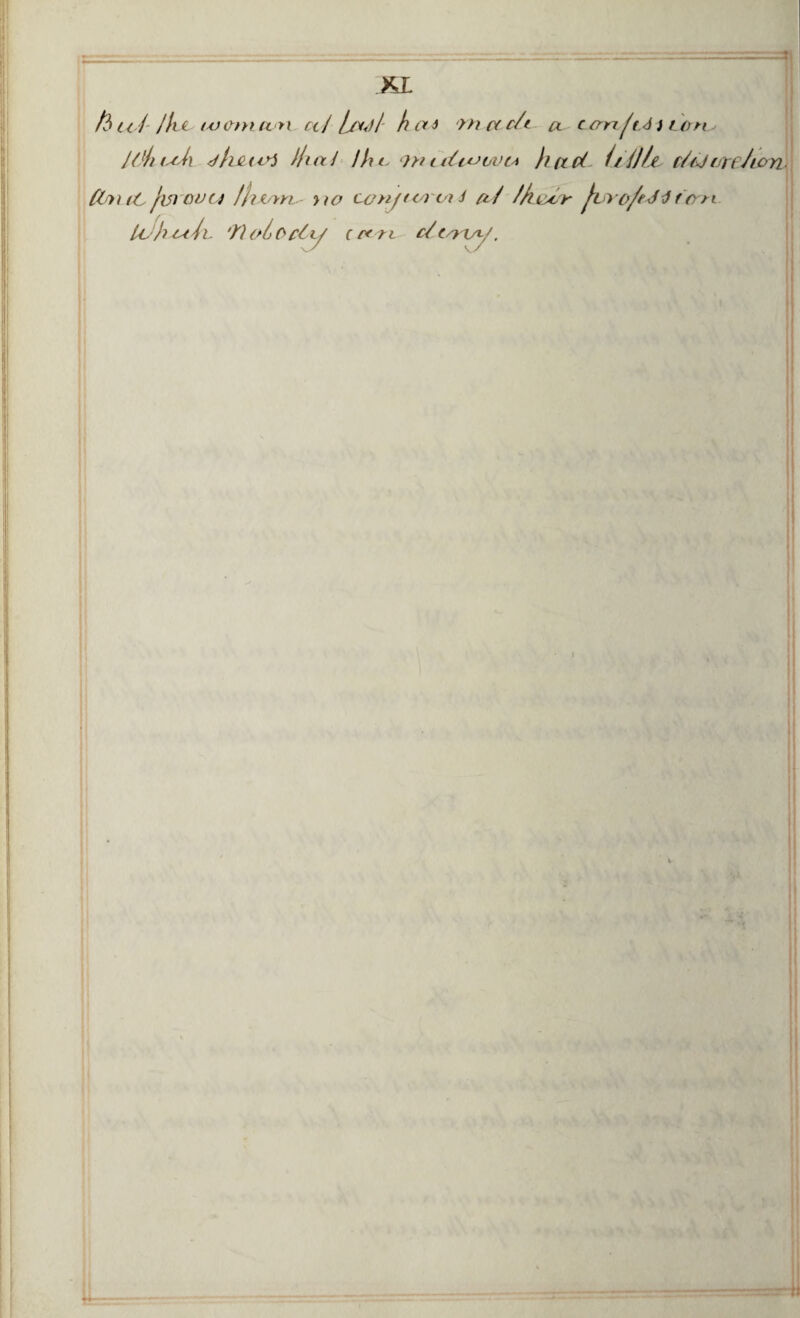 XI.
But the woman at Last has made a confession
Which shews that the midwives had little discretion.
And proves them no conjurors at their profession
Which Nobody can deny.